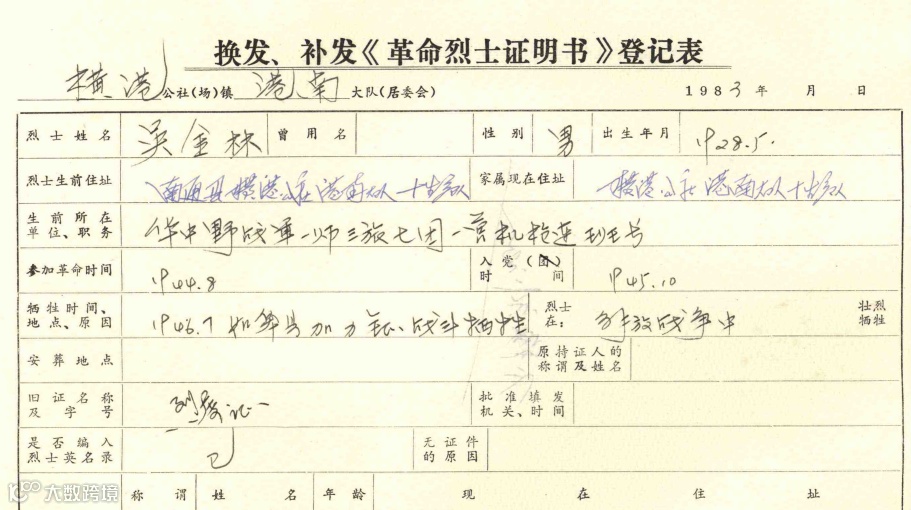 换发、补发《革命烈士证明书》登记表
横港公社(场)镇 港南 大队(居委会) 1983年 月 日
烈士姓名 吴金林 曾用名 性别 男 出生年月 1928.5.
烈士生前住址 南通县横港公社港南大队十 家属现在住址 横港公社港南大队十
生前所在单位、职务 华中野战军一师三旅七团一营机枪连班长
参加革命时间 1944.8 入党(团)时间 1945.10
牺牲时间、地点、原因 1946.7 如皋县加力 战斗牺牲 烈士在: 解放战争中 壮烈牺牲
安葬地点 原持证人的称谓及姓名
旧证名称及字号 证 批准填发机关、时间
是否编入烈士英名录 已 无证件的原因
称谓 姓名 年龄 现在住址
大数跨境